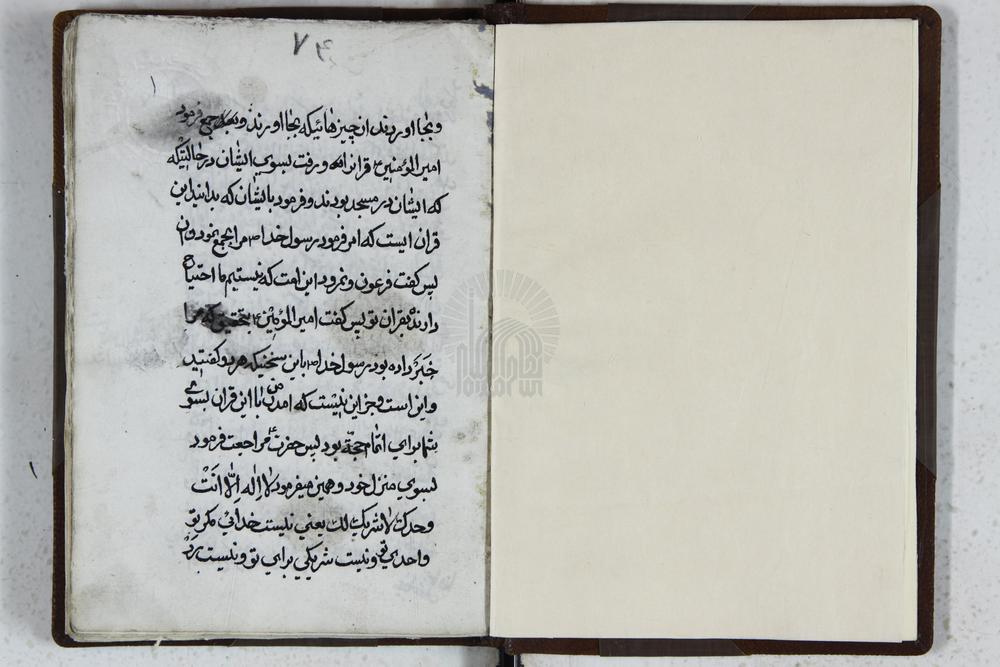 ۷۴
۱
وبجا اوردند ان چیزهائیکه بجا اورند و جمع فرمود
امیر المؤمنین قرانرا و رفت بسوی ایشان در حالتیکه
که ایشان در مسجد بودند و فرمود بایشان که بدانید این
قران ایست که امر فرمود رسول خدا ص مرا بجمع نمودن ان
پس گفت فرعون و نمرود این امت که نیستیم ما احتیاج
دارنده بقران تو پس گفت امیر المؤمنین ع بتحقیق که مرا
خبر داده بود رسول خدا ص باین سخنیکه هر دو گفتید
و این است و جز این نیست که امدن من با این قران بسوی
شما برای اتمام حجة بود پس حضرت ع مراجعت فرمود
بسوی منزل خود و همین میفرمود لا اله الا انت
وحدک لا شریک لک یعنی نیست خدائی مکر تو
واحدی تو و نیست شریکی برای تو و نیست رد